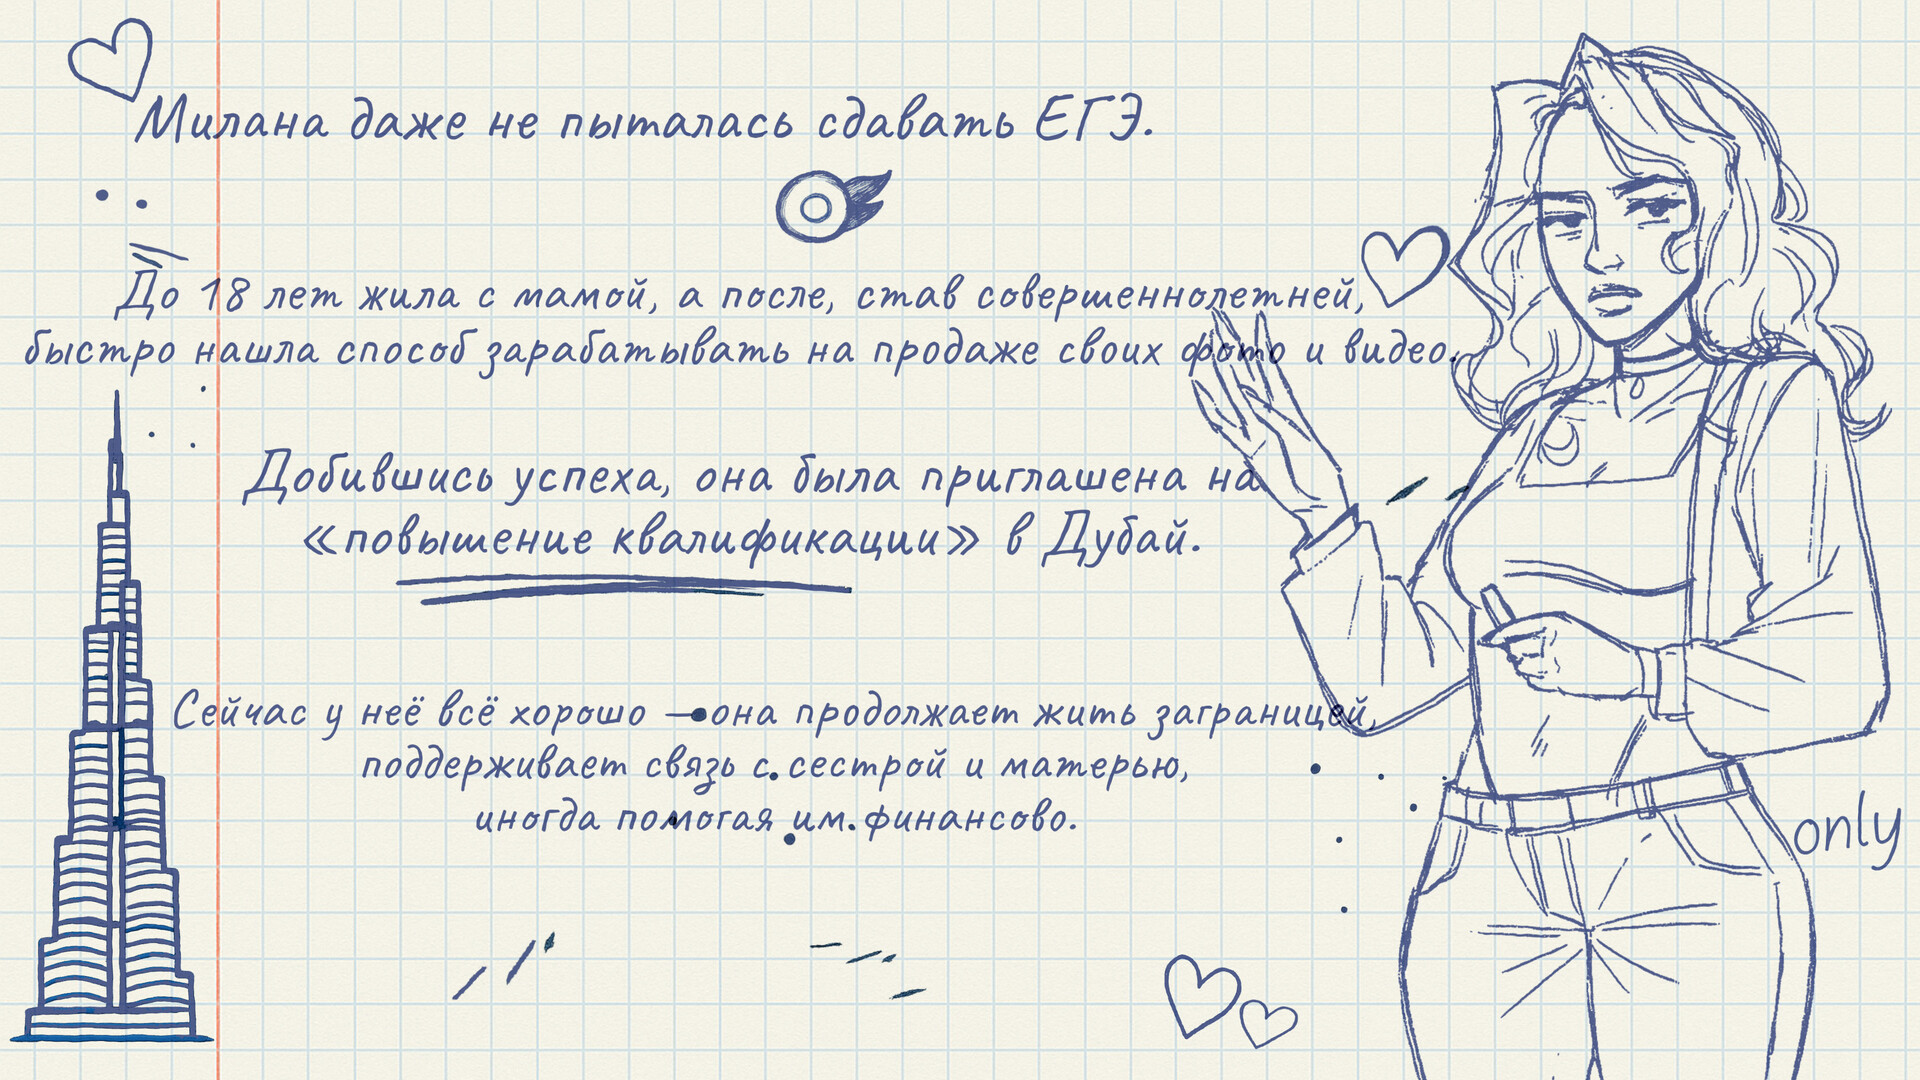 Милана даже не пыталась сдавать ЕГЭ.
До 18 лет жила с мамой, а после, став совершеннолетней,
быстро нашла способ зарабатывать на продаже своих фото и видео.
Добившись успеха, она была приглашена на
«повышение квалификации» в Дубай.
Сейчас у неё всё хорошо — она продолжает жить заграницей,
поддерживает связь с сестрой и матерью,
иногда помогая им финансово.
only